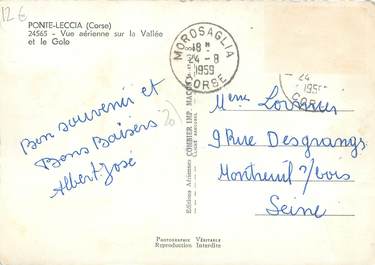 12 €
PONTE-LECCIA (Corse)
24565 - Vue aérienne sur la Vallée
et le Golo
MOROSAGLIA
18 H
24 - 8
1959
CORSE
24
195
COR
Bon souvenir et
Bons Baisers
Albert José
Editions Aériennes COMBIER IMP. MACON
Mme
9 Rue Desgranges
Montreuil s/bois
Seine
PHOTOGRAPHIE VÉRITABLE
Reproduction Interdite